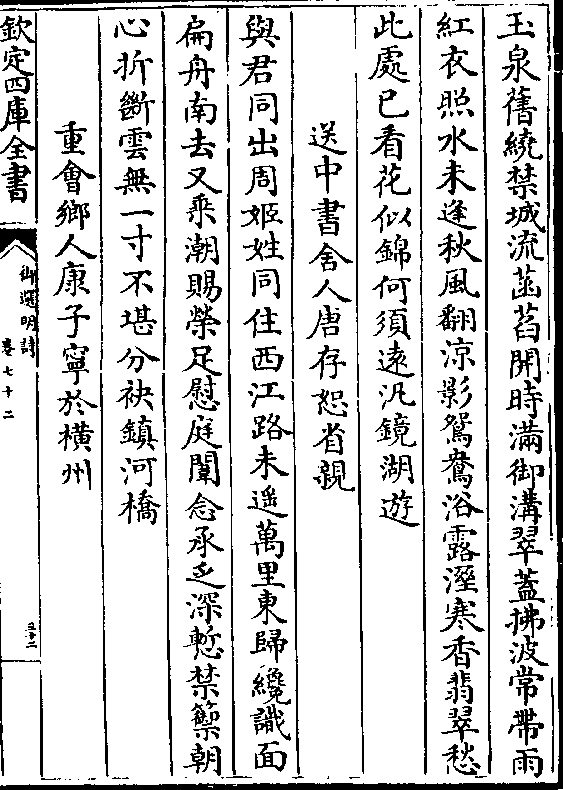 玉泉舊繞禁城流菡萏開時滿御溝翠蓋拂波常帶雨
紅衣照水未逢秋風翻涼影鴛鴦浴露溼寒香翡翠愁
此處已看花似錦何須遠汎鏡湖遊
送中書舍人唐存恕省親
與君同出周姬姓同住西江路未遥萬里東歸纔識面
扁舟南去又乘潮賜榮足慰庭闈念承乏深慙禁籞朝
心折斷雲無一寸不堪分袂鎮河橋
重會鄉人康子寧於橫州
欽定四庫全書
御選明詩
卷七十二